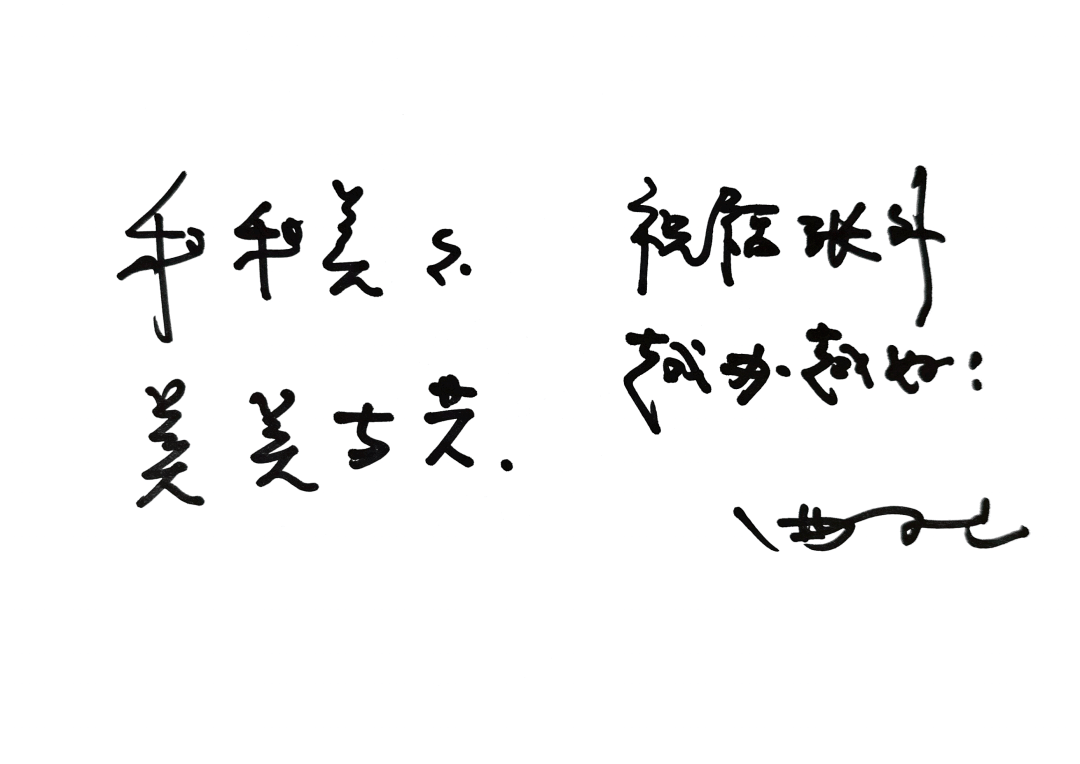 和和美美.
美美与共.
祝福张科
越办越好: